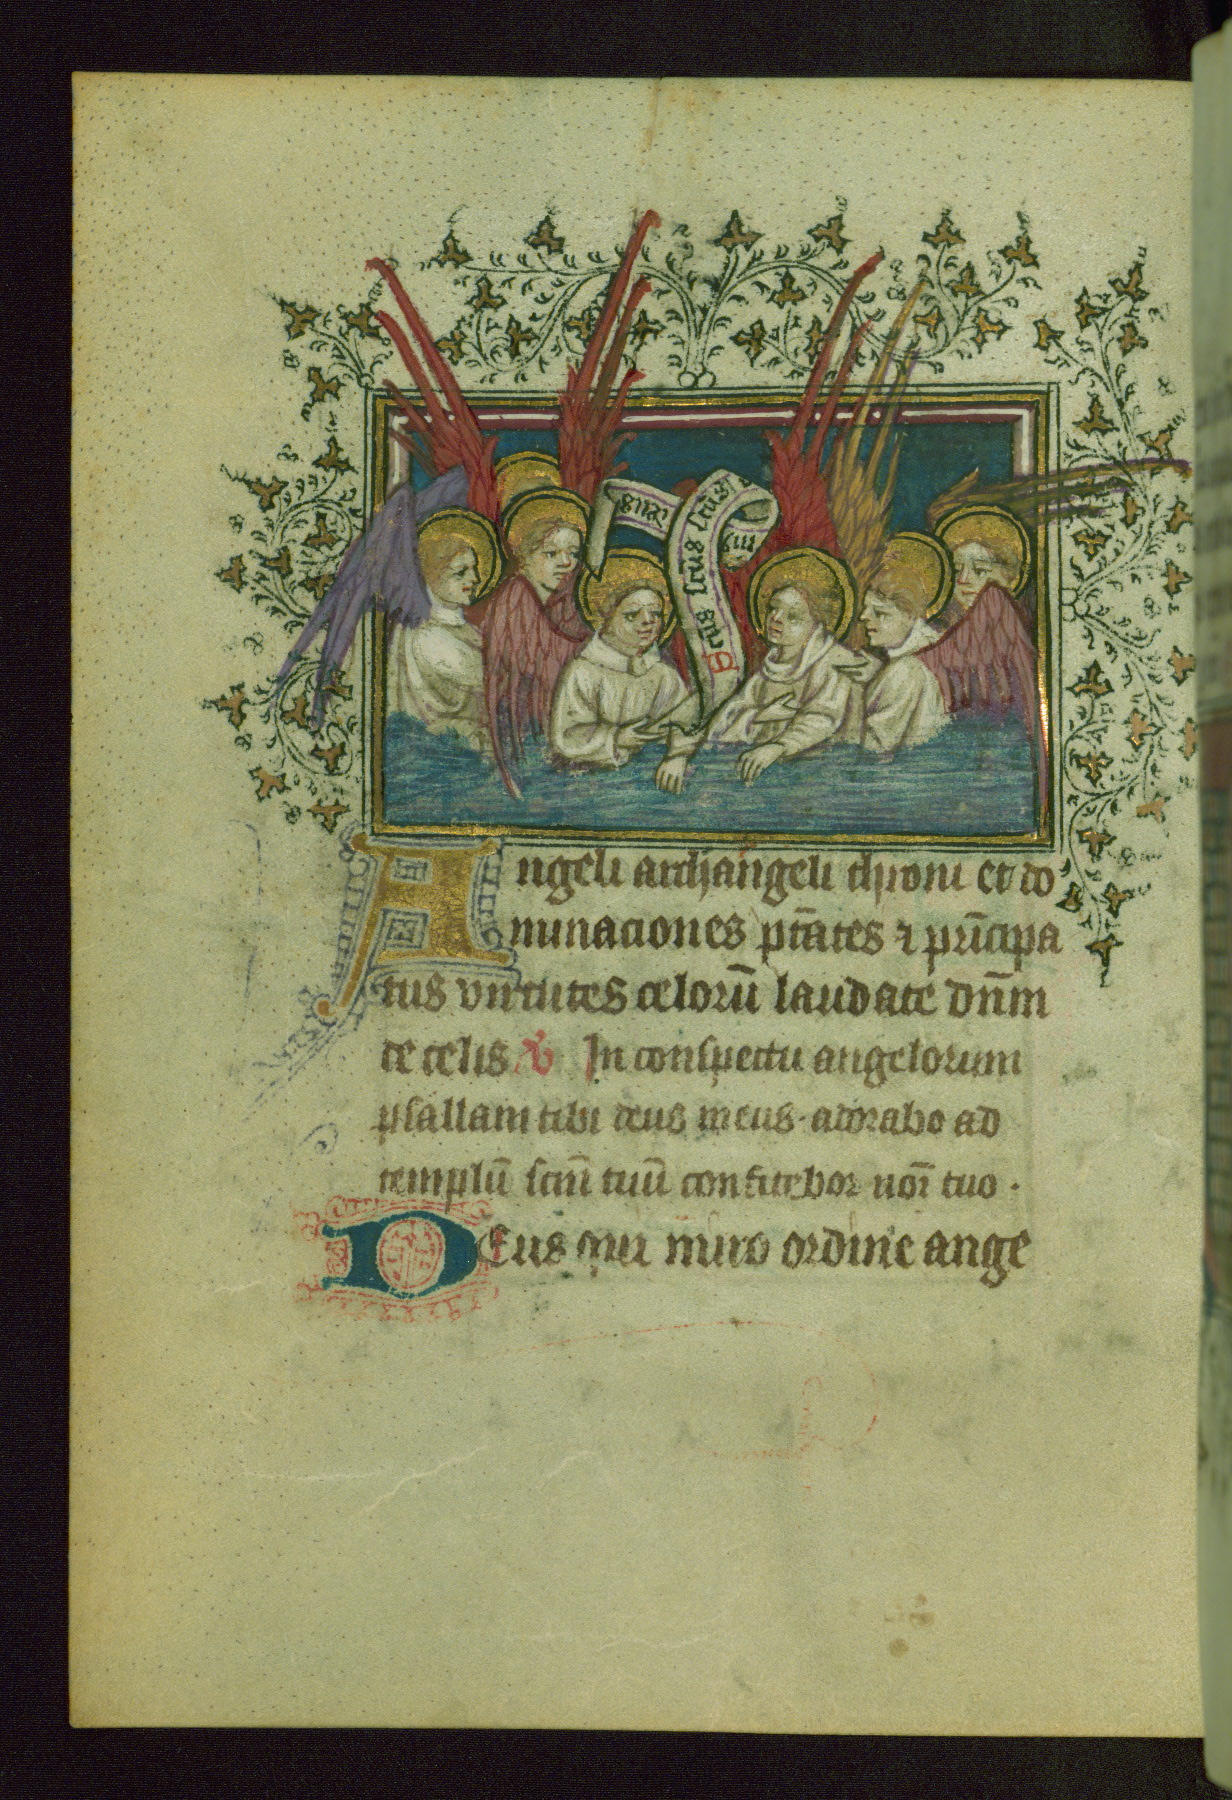 Sctus sctus sctus
Angeli archangeli throni et do
minaciones ptates ⁊ pricipa
tus virtutes celorū laudate dn̄m
de celis ℣ In conspectu angelorum
psallam tibi deus meus · adorabo ad
templū sctm̄ tuū confitebor noī tuo ·
Deus qui miro ordine ange